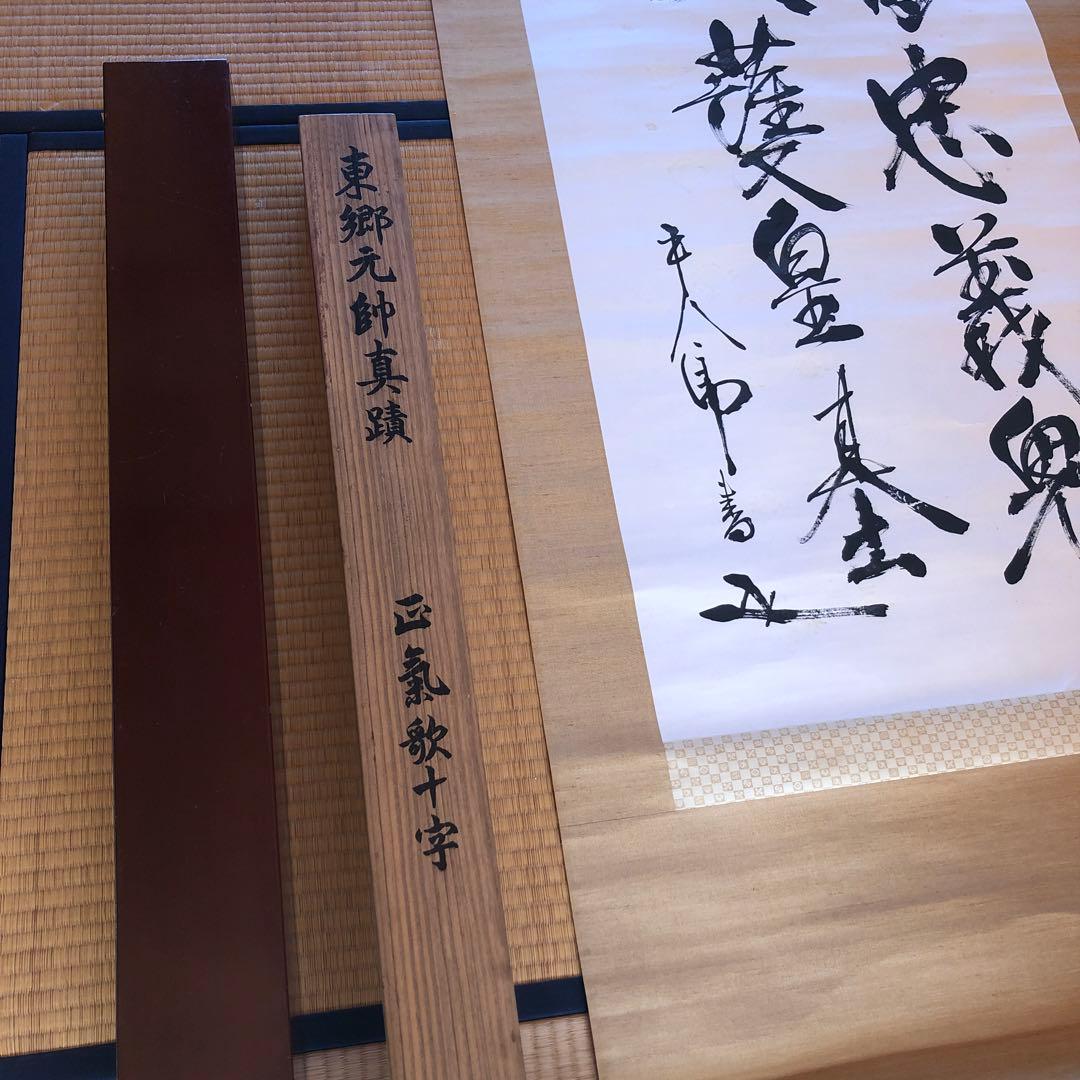 忠義鬼
護皇基
平八郎書
東郷元帥真蹟
正氣歌十字